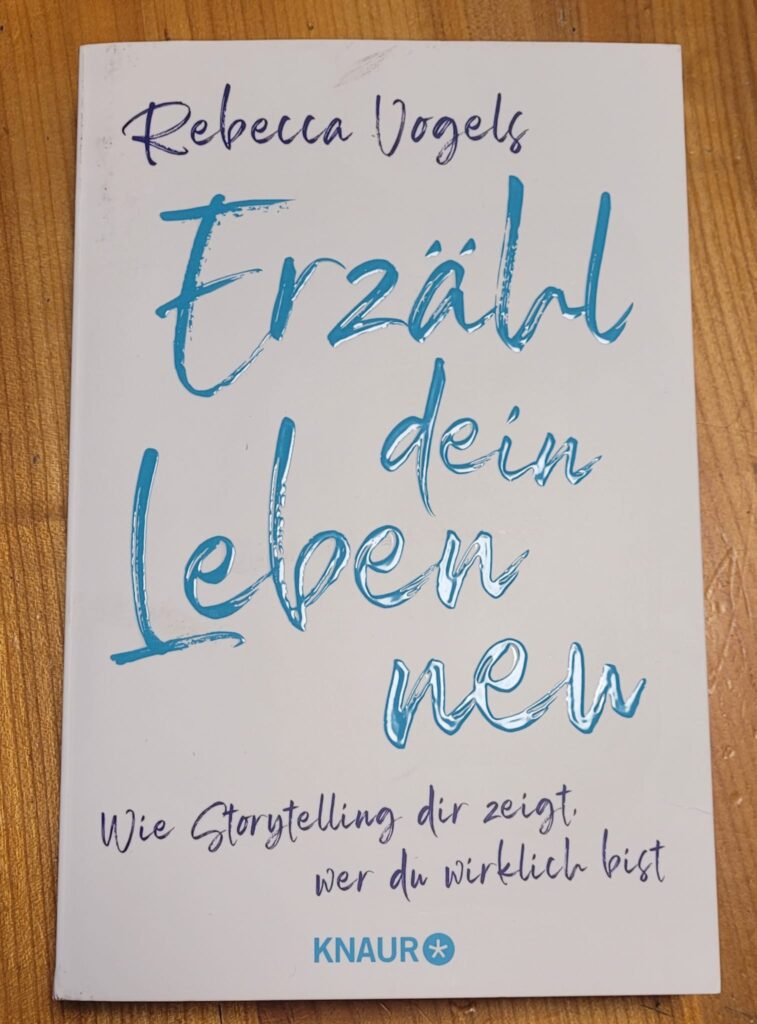 Rebecca Vogels
Erzähl
dein
Leben
neu
Wie Storytelling dir zeigt,
wer du wirklich bist
KNAUR